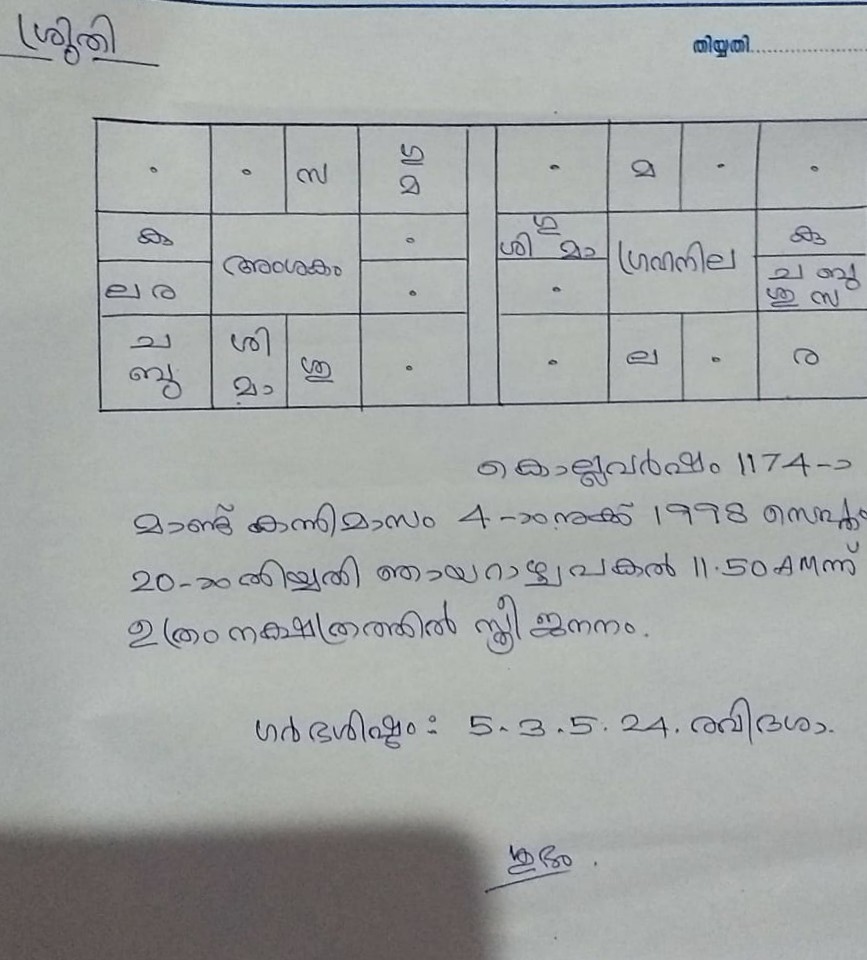 ശ്രുതി
തിയ്യതി....................
. . സ ഗു മ . മ . .
കു . ഗു ശി മാ കു
അംശകം ഗ്രഹനില
ല ര . . ച ബു ശു സ
ച ബു ശി മാ ശു . . ല . ര
കൊല്ലവർഷം 1174-ാ
മാണ്ട് കന്നിമാസം 4-ാംനുക്ക് 1998 സെപ്റ്റം
20-ാംതിയ്യതി ഞായറാഴ്ചപകൽ 11.50AMന്
ഉത്രം നക്ഷത്രത്തിൽ സ്ത്രീ ജനനം.
ഗർഭശിഷ്ടം: 5.3.5.24. രവിദശാ.
ശുഭം.